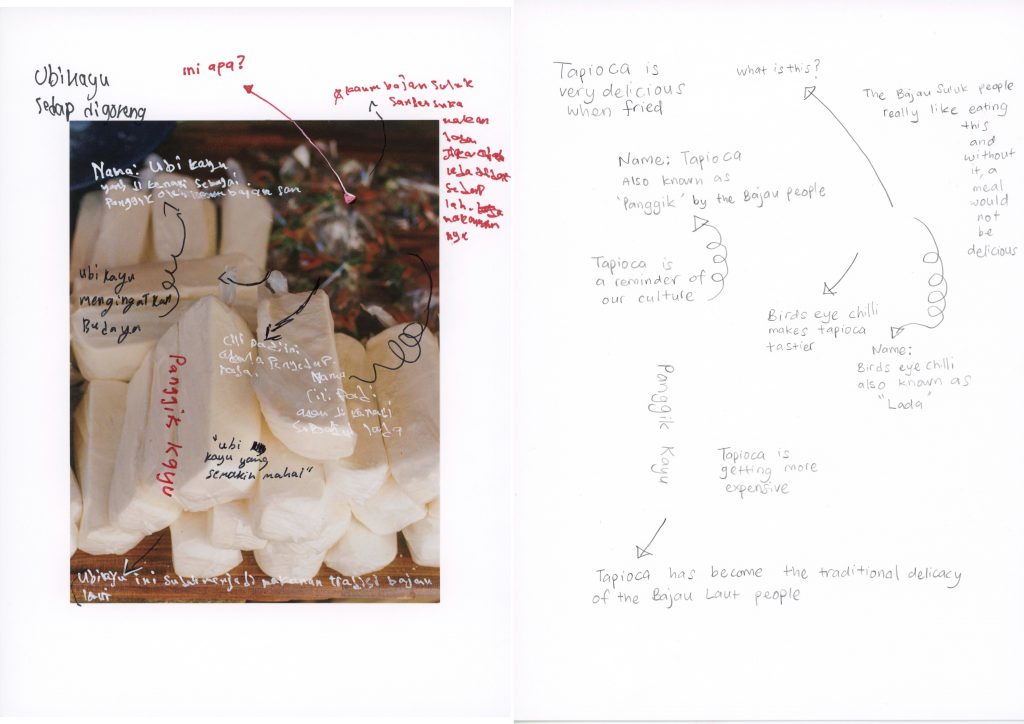 Ubi kayu
sedap digoreng
ini apa?
kaum bajau suluk
suka
makan
sedap
lah.
makanan
nya
Nama: Ubi kayu
yang di kenali sebagai
Panggik oleh kaum bajau
ubi kayu
mengingatkan
Budaya
Cili Padi ini
Penyedap
rasa.
Nama:
Cili Padi
di kenali
lada
Panggik kayu
"ubi
kayu yang
semakin mahal"
Ubi kayu ini menjadi makanan tradisi bajau
laut
Tapioca is
very delicious
when fried
what is this?
The Bajau Suluk people
really like eating
this
and
without
it, a
meal
would
not
be
delicious
Name: Tapioca
Also known as
'Panggik' by the Bajau people
Tapioca is
a reminder of
our culture
Birds eye chilli
makes tapioca
tastier
Name:
Birds eye chilli
also known as
"Lada"
Panggik Kayu
Tapioca is
getting more
expensive
Tapioca has become the traditional delicacy
of the Bajau Laut people